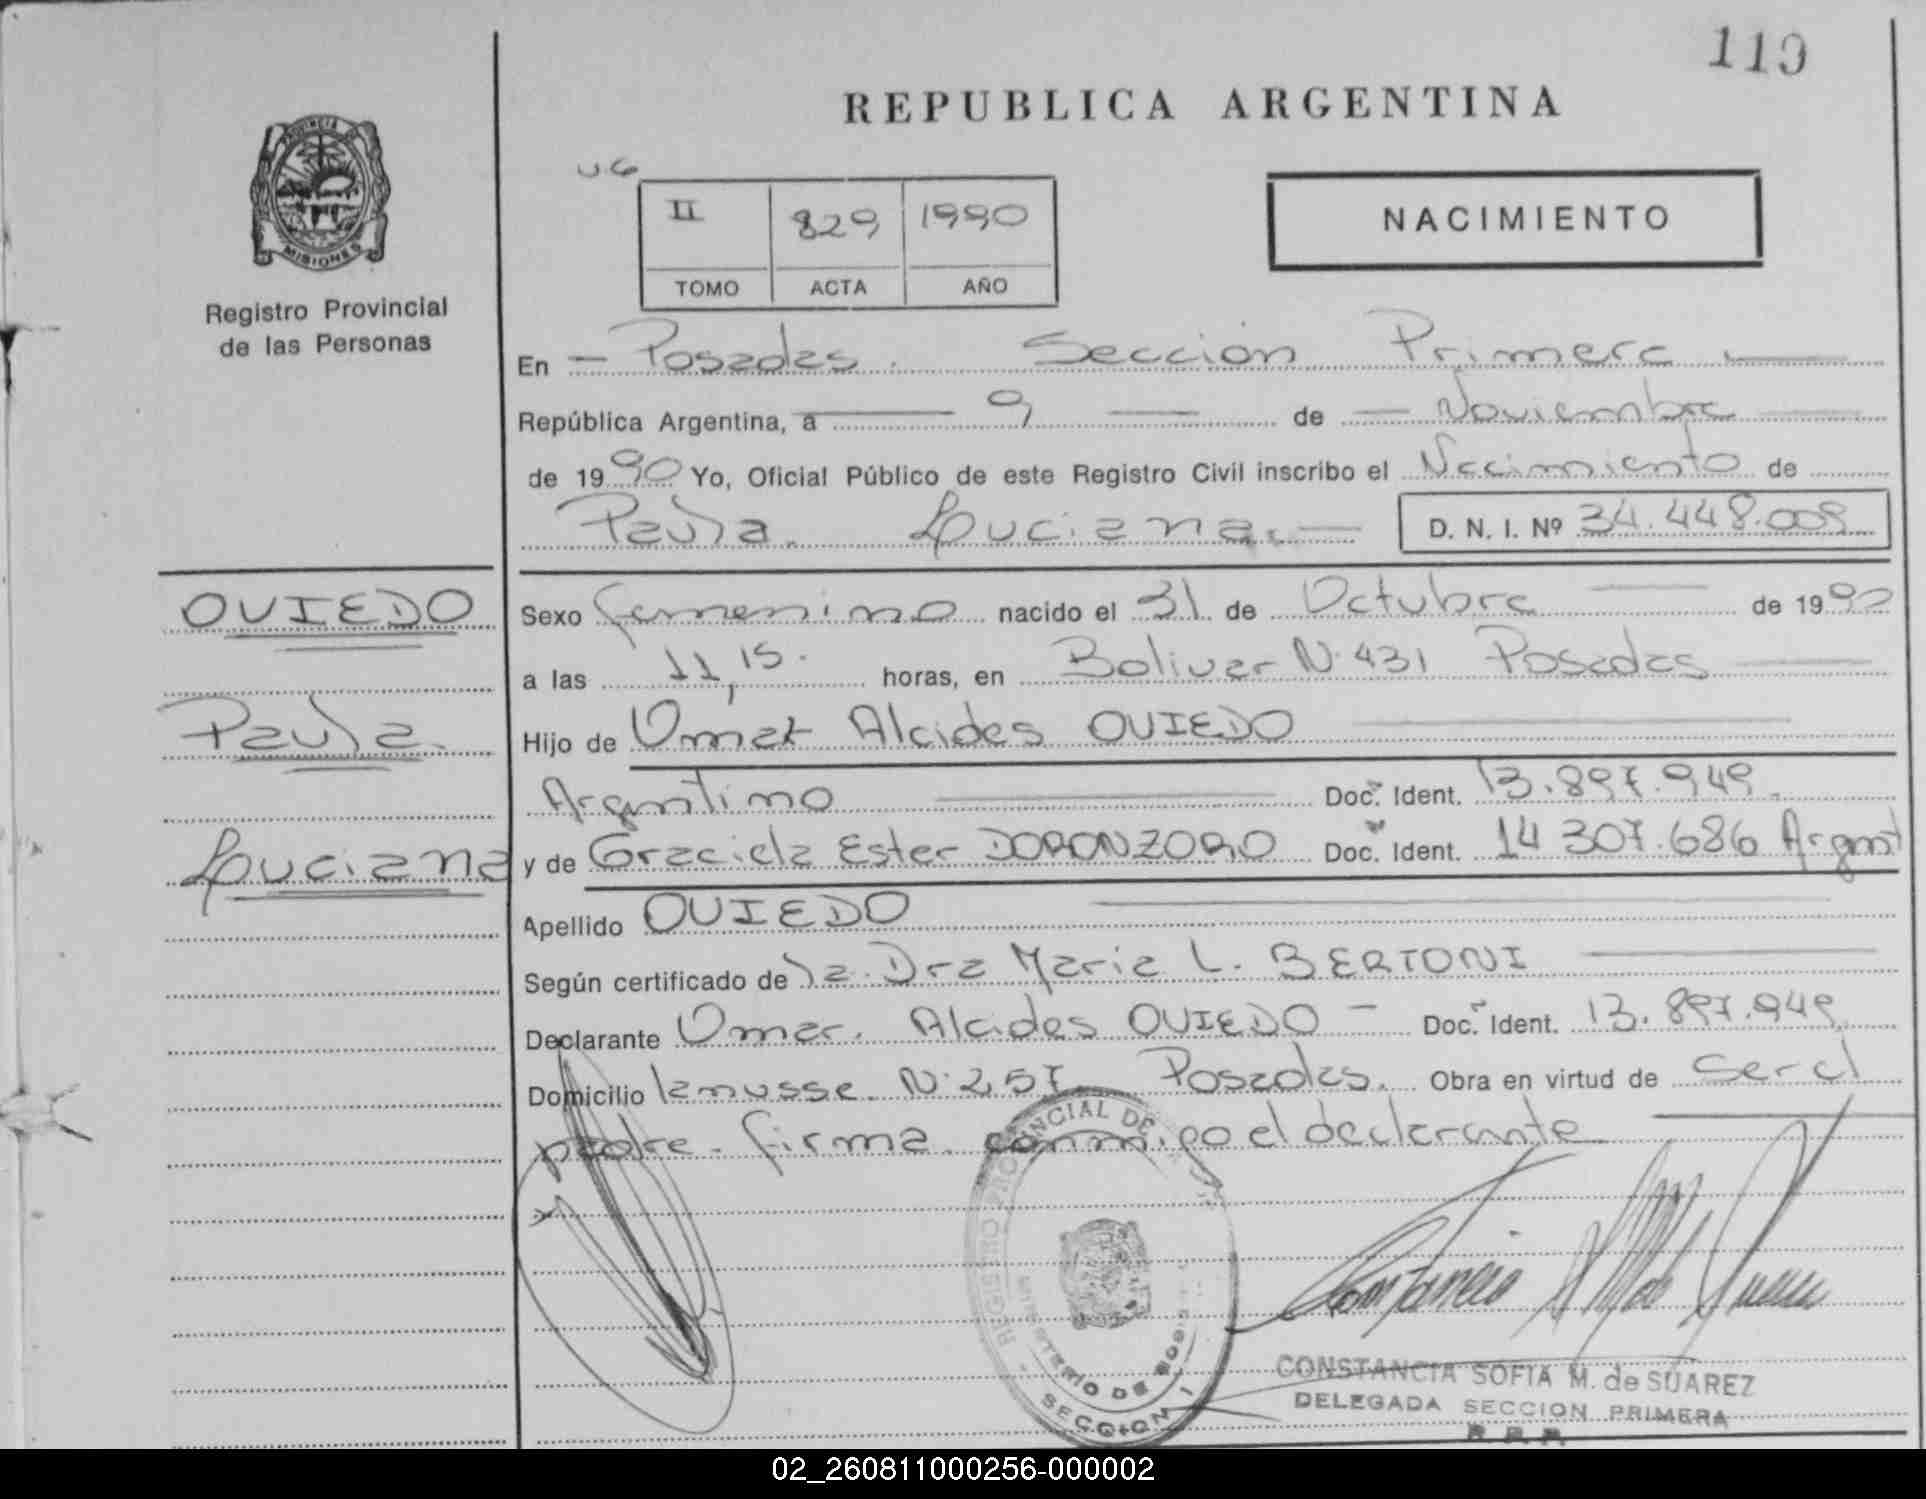 119
REPUBLICA ARGENTINA
PROVINCIA DE
MISIONES
Registro Provincial
de las Personas
II 829 1990
TOMO ACTA AÑO
NACIMIENTO
En — Posadas. Sección Primera —
República Argentina, a — 9 — de — Noviembre —
de 1990 Yo, Oficial Público de este Registro Civil inscribo el Nacimiento de
Paula Luciana. — D. N. I. Nº 34.448.009
OVIEDO
Paula
Luciana
Sexo femenino nacido el 31 de Octubre — de 1990
a las 11,15. horas, en Bolivar N. 431 Posadas —
Hijo de Omar Alcides OVIEDO —
Argentino — Doc. Ident. 13.897.949.
y de Graciela Ester DORONZORO Doc. Ident. 14 307.686 Argent
Apellido OVIEDO —
Según certificado de la Dra Maria L. BERTONI —
Declarante Omar. Alcides OVIEDO — Doc. Ident. 13.897.949
Domicilio lanusse N. 257 Posadas. Obra en virtud de ser el
padre. firma conmigo el declarante
REGISTRO PROVINCIAL DE
MINISTERIO DE
SECCION 1
CONSTANCIA SOFIA M. de SUAREZ
DELEGADA SECCION PRIMERA
R.P.P.
02_260811000256-000002